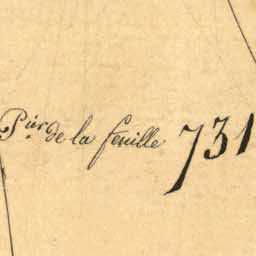 Pier de la feuille 731